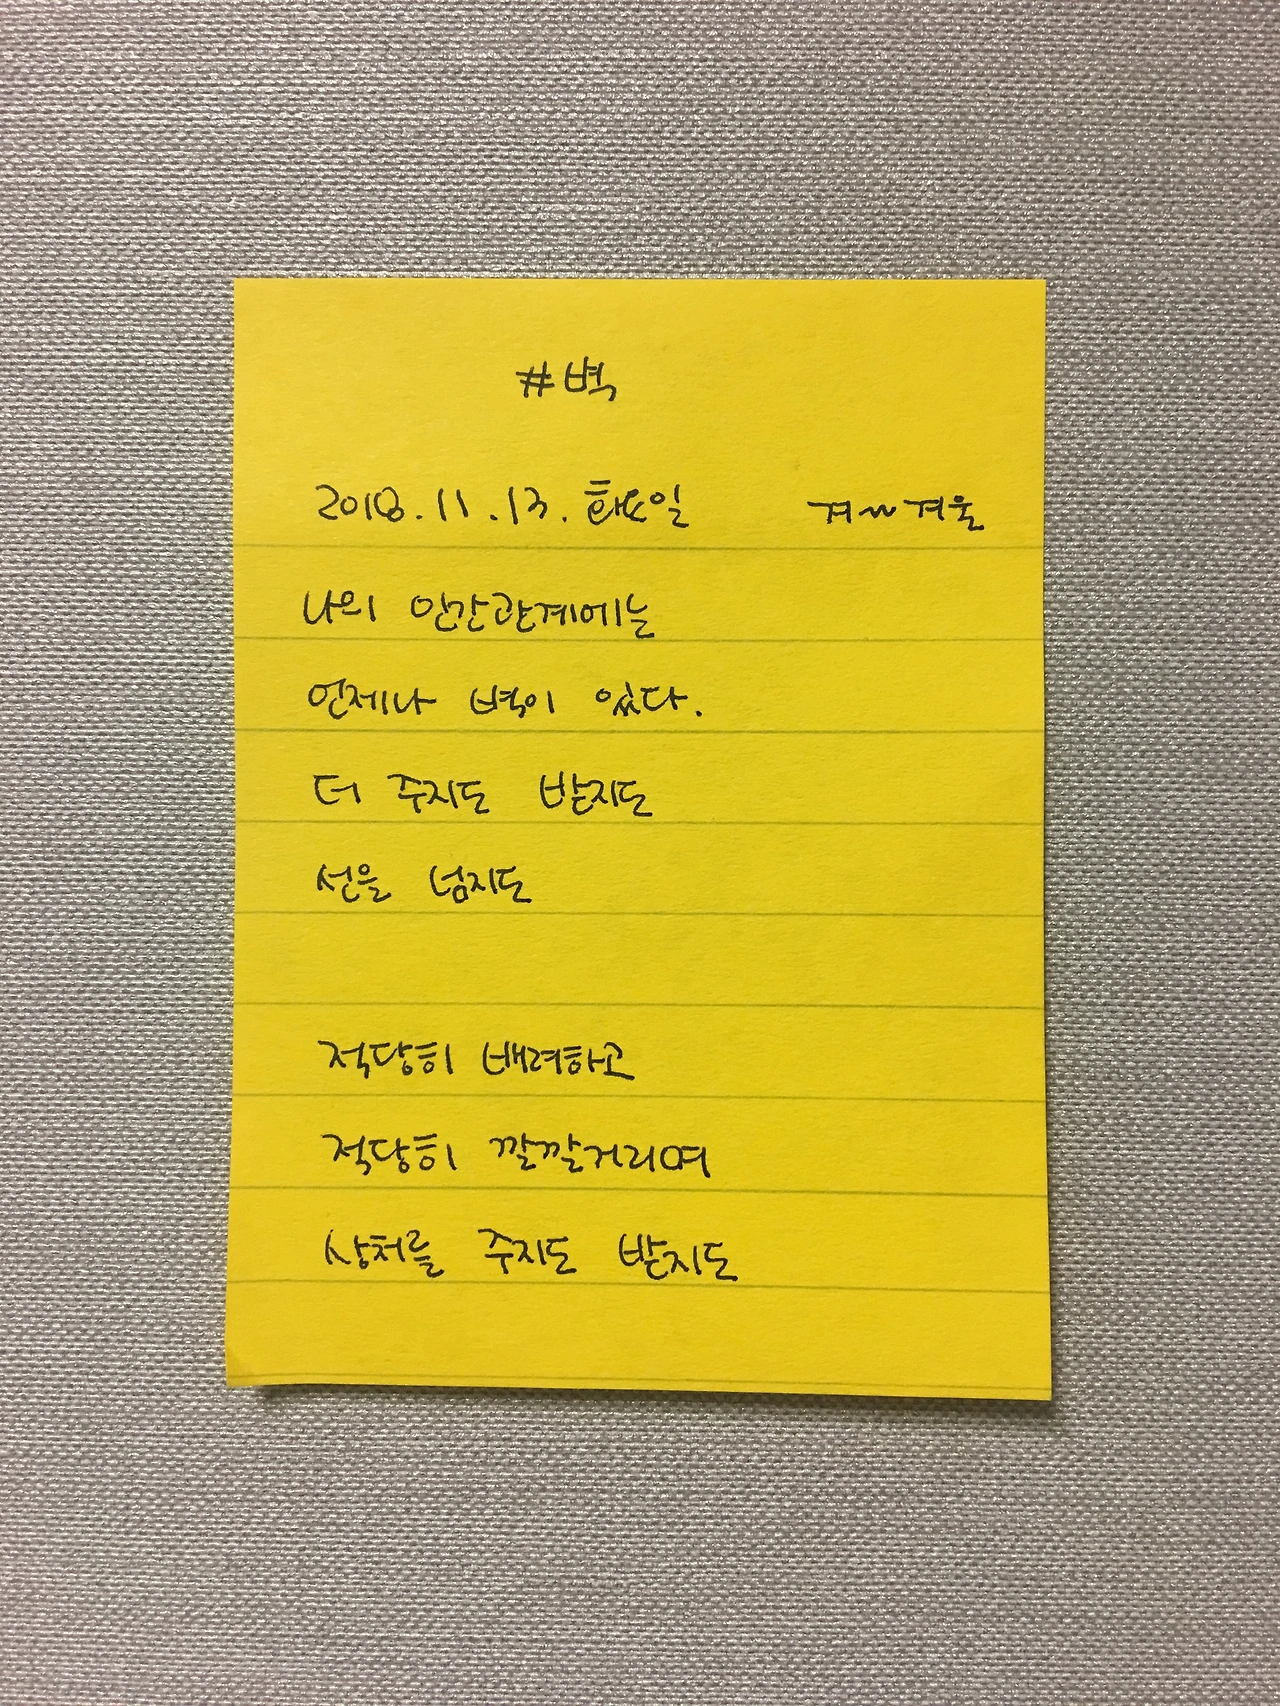 #벽
2018.11.13. 화요일 겨~~겨울
나의 인간관계에는
언제나 벽이 있다.
더 주지도 받지도
선을 넘지도
적당히 배려하고
적당히 깔깔거리며
상처를 주지도 받지도